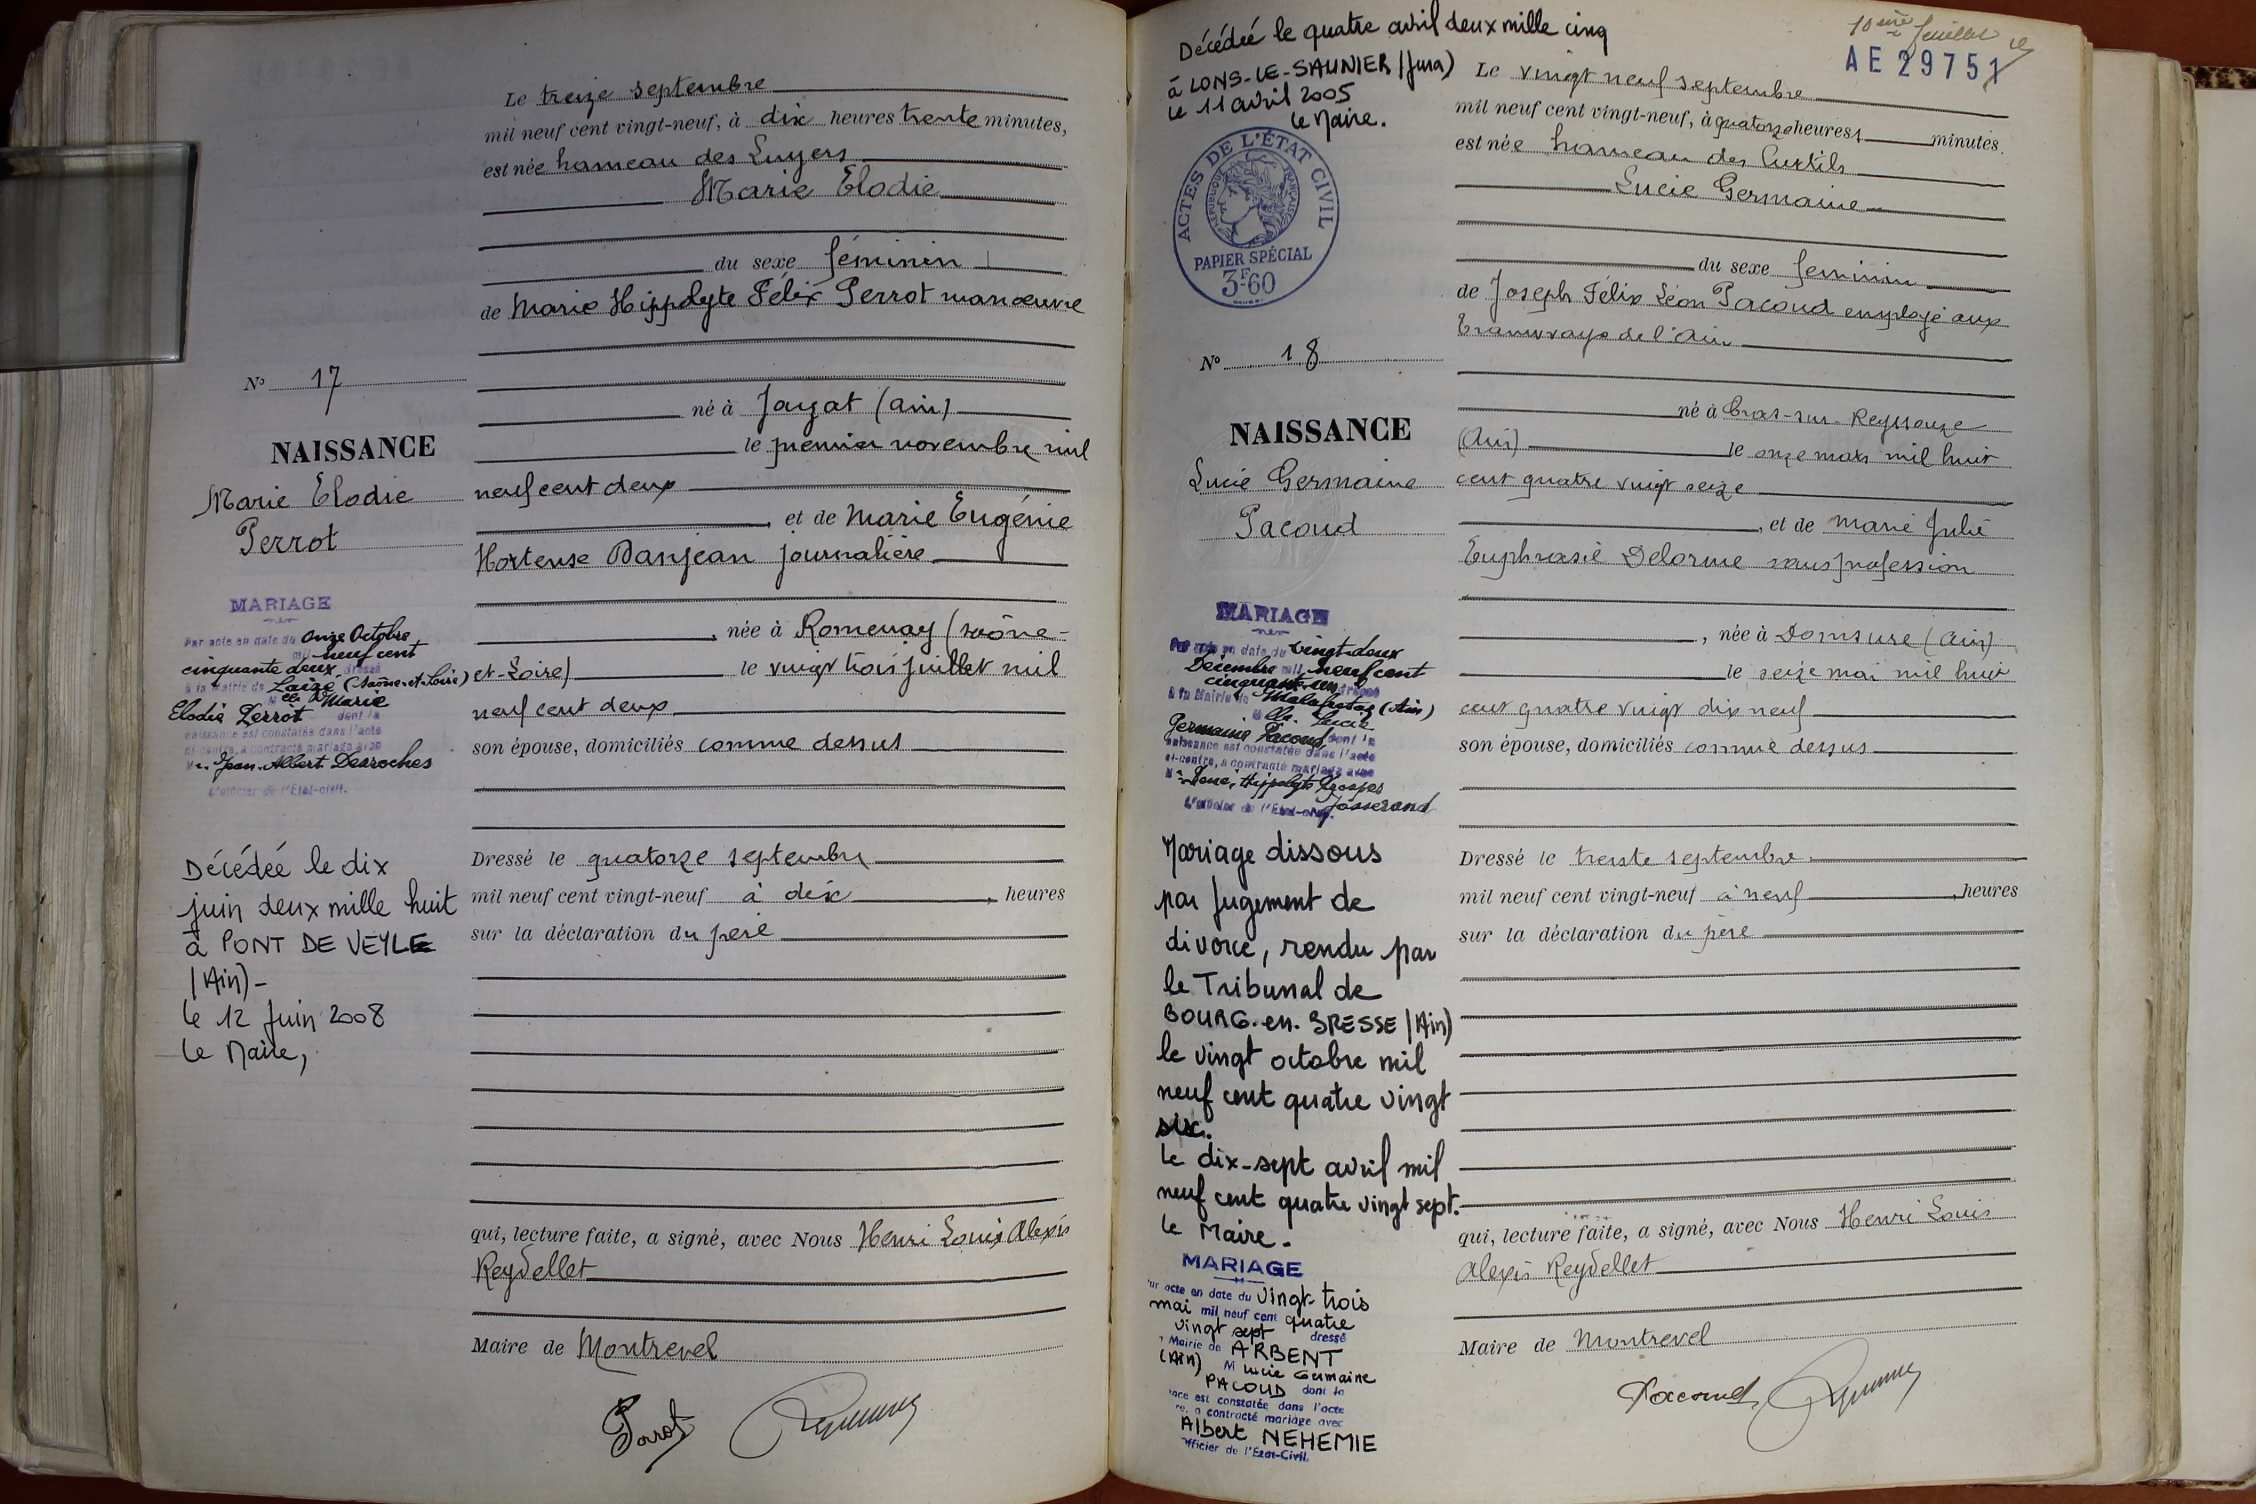 Le treize septembre
mil neuf cent vingt-neuf, à dix heures trente minutes,
est née hameau des Luyers
Marie Elodie
du sexe féminin
de Marie Hippolyte Félix Perrot manœuvre
né à Jayat (Ain)
le premier novembre mil
neuf cent deux
, et de Marie Eugénie
Hortense Danjean journalière
, née à Romenay (Saône-
et-Loire) le vingt trois juillet mil
neuf cent deux
son épouse, domiciliés comme dessus
Dressé le quatorze septembre
mil neuf cent vingt-neuf à dix, heures
sur la déclaration du père
qui, lecture faite, a signé, avec Nous Henri Louis Alexis
Reydellet
Maire de Montrevel
Perrot
N° 17
NAISSANCE
Marie Elodie
Perrot
MARIAGE
Par acte en date du onze Octobre
mil neuf cent
cinquante deux dressé
à la Mairie de Laizé (Saône-et-Loire)
Mlle Marie
Elodie Perrot dont la
naissance est constatée dans l'acte
ci-contre, a contracté mariage avec
M. Jean Albert Desroches
L'officier de l'Etat-civil.
Décédée le dix
juin deux mille huit
à PONT DE VEYLE
(Ain)-
le 12 juin 2008
Le Maire,
Décédée le quatre avril deux mille cinq
à LONS-LE-SAUNIER (Jura)
le 11 avril 2005
Le Maire.
ACTES DE L'ÉTAT CIVIL
RÉPUBLIQUE FRANÇAISE
PAPIER SPÉCIAL
3F60
10ème feuillet
AE 29751
Le vingt neuf septembre
mil neuf cent vingt-neuf, à quatorze heures, minutes.
est née hameau des Curtils
Lucie Germaine
du sexe feminin
de Joseph Félix Léon Pacoud employé aux
tramways de l'Ain
né à Cras-sur-Reyssouze
(Ain) le onze mars mil huit
cent quatre vingt seize
, et de Marie Julie
Euphrasie Delorme sans profession
, née à Domsure (Ain)
le seize mai mil huit
cent quatre vingt dix neuf
son épouse, domiciliés comme dessus
Dressé le trente septembre
mil neuf cent vingt-neuf à neuf, heures
sur la déclaration du père
qui, lecture faite, a signé, avec Nous Henri Louis
Alexis Reydellet
Maire de Montrevel
Pacoud
N° 18
NAISSANCE
Lucie Germaine
Pacoud
MARIAGE
Par acte en date du vingt-deux
Décembre mil neuf cent
cinquante-un dressé
à la Mairie de Malafretaz (Ain)
Mlle Lucie
Germaine Pacoud dont la
naissance est constatée dans l'acte
ci-contre, a contracté mariage avec
Hippolyte Prosper
Josserand
L'officier de l'Etat-civil.
Mariage dissous
par jugement de
divorce, rendu par
le Tribunal de
BOURG-en-BRESSE (Ain)
le vingt octobre mil
neuf cent quatre vingt
six.
Le dix-sept avril mil
neuf cent quatre vingt sept.
Le Maire.
MARIAGE
ur acte en date du vingt-trois
mai mil neuf cent quatre
vingt sept dressé
Mairie de ARBENT
(Ain) M Lucie Germaine
PACOUD dont la
nce est constatée dans l'acte
re, a contracté mariage avec
Albert NEHEMIE
officier de l'Etat-Civil.